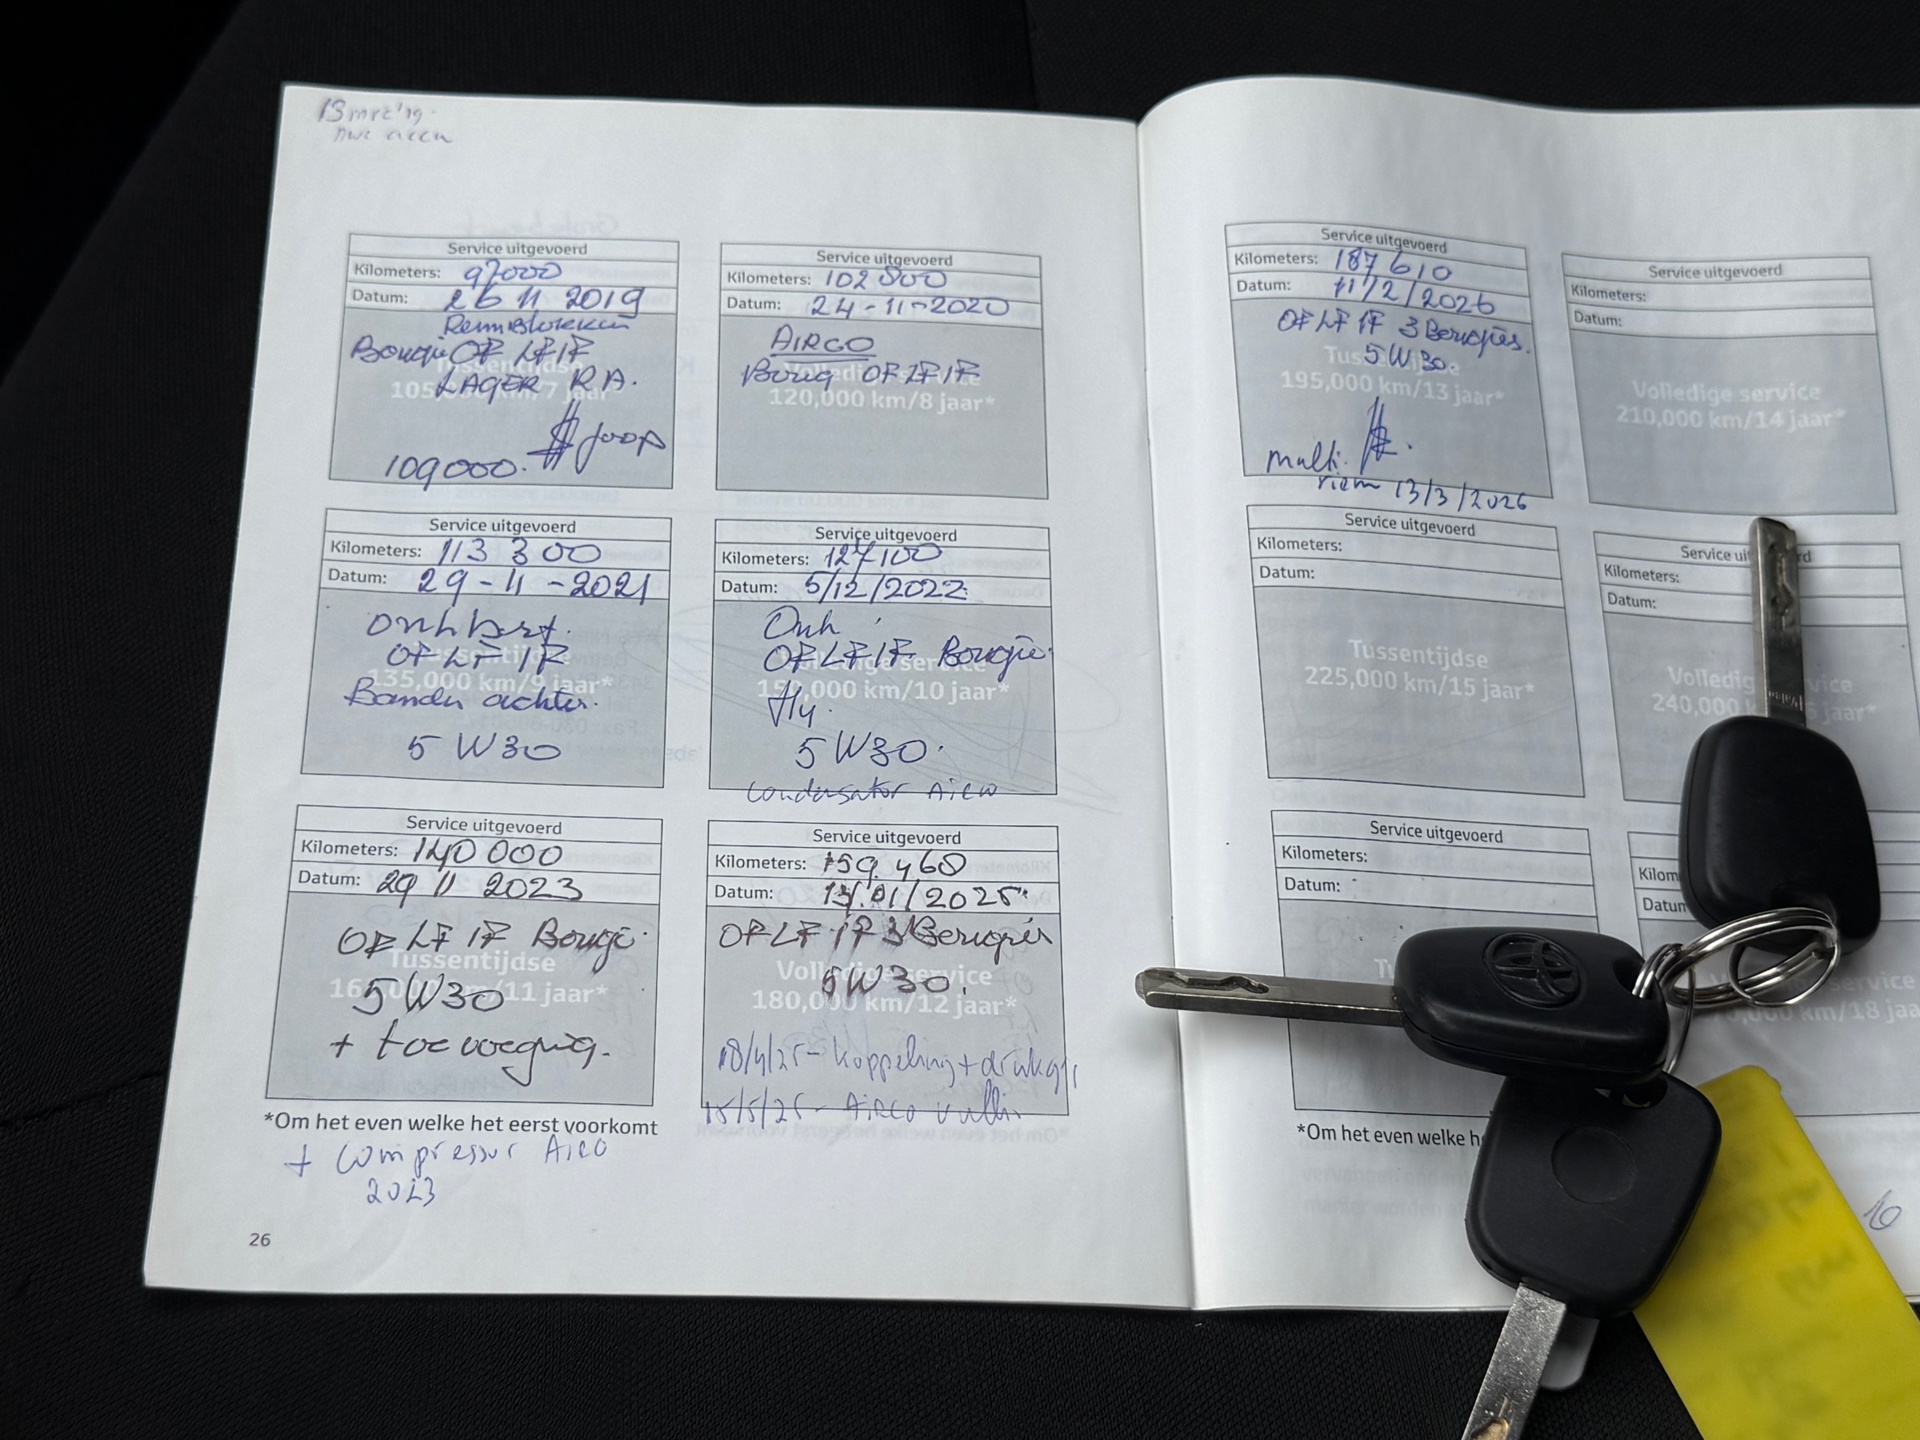 13 mrt '19
nwe accu
Service uitgevoerd
Kilometers: 97000
Datum: 26 11 2019
Remblokken
Bougie OF LF IF
LAGER R A.
Tussentijdse
105,000 km/7 jaar*
Joop
109000.
Service uitgevoerd
Kilometers: 102800
Datum: 24-11-2020
AIRCO
Boug OF LF IF
Volledige service
120,000 km/8 jaar*
Service uitgevoerd
Kilometers: 113 300
Datum: 29-11-2021
Onh bert.
OF LF IF
Tussentijdse
135,000 km/9 jaar*
Banden achter.
5 W30
Service uitgevoerd
Kilometers: 127100
Datum: 5/12/2022
Onh
OF LF IF Bougie
Volledige service
150,000 km/10 jaar*
5 W30.
condensator Airco
Service uitgevoerd
Kilometers: 140 000
Datum: 29 11 2023
OF LF IF Bougi
Tussentijdse
5 W30
km/11 jaar*
+ toevoeging.
*Om het even welke het eerst voorkomt
+ compressor Airco
2023
26
Service uitgevoerd
Kilometers: 159.460
Datum: 13/01/2025
OF LF IF 3 Beugies
Volledige service
5W30.
180,000 km/12 jaar*
18/4/25 - Koppeling + drukgr
15/5/25 - AIRCO vullin
Service uitgevoerd
Kilometers: 187 610
Datum: 11/2/2026
OF LF IF 3 Beugies.
Tussentijdse
5 W 30.
195,000 km/13 jaar*
multi.
riem 13/3/2026
Service uitgevoerd
Kilometers:
Datum:
Volledige service
210,000 km/14 jaar*
Service uitgevoerd
Kilometers:
Datum:
Tussentijdse
225,000 km/15 jaar*
Service ui rd
Kilometers:
Datum:
Volledig vice
240,000 jaar*
Service uitgevoerd
Kilometers:
Datum:
*Om het even welke h
Kilom
Datun
service
km/18 jaa